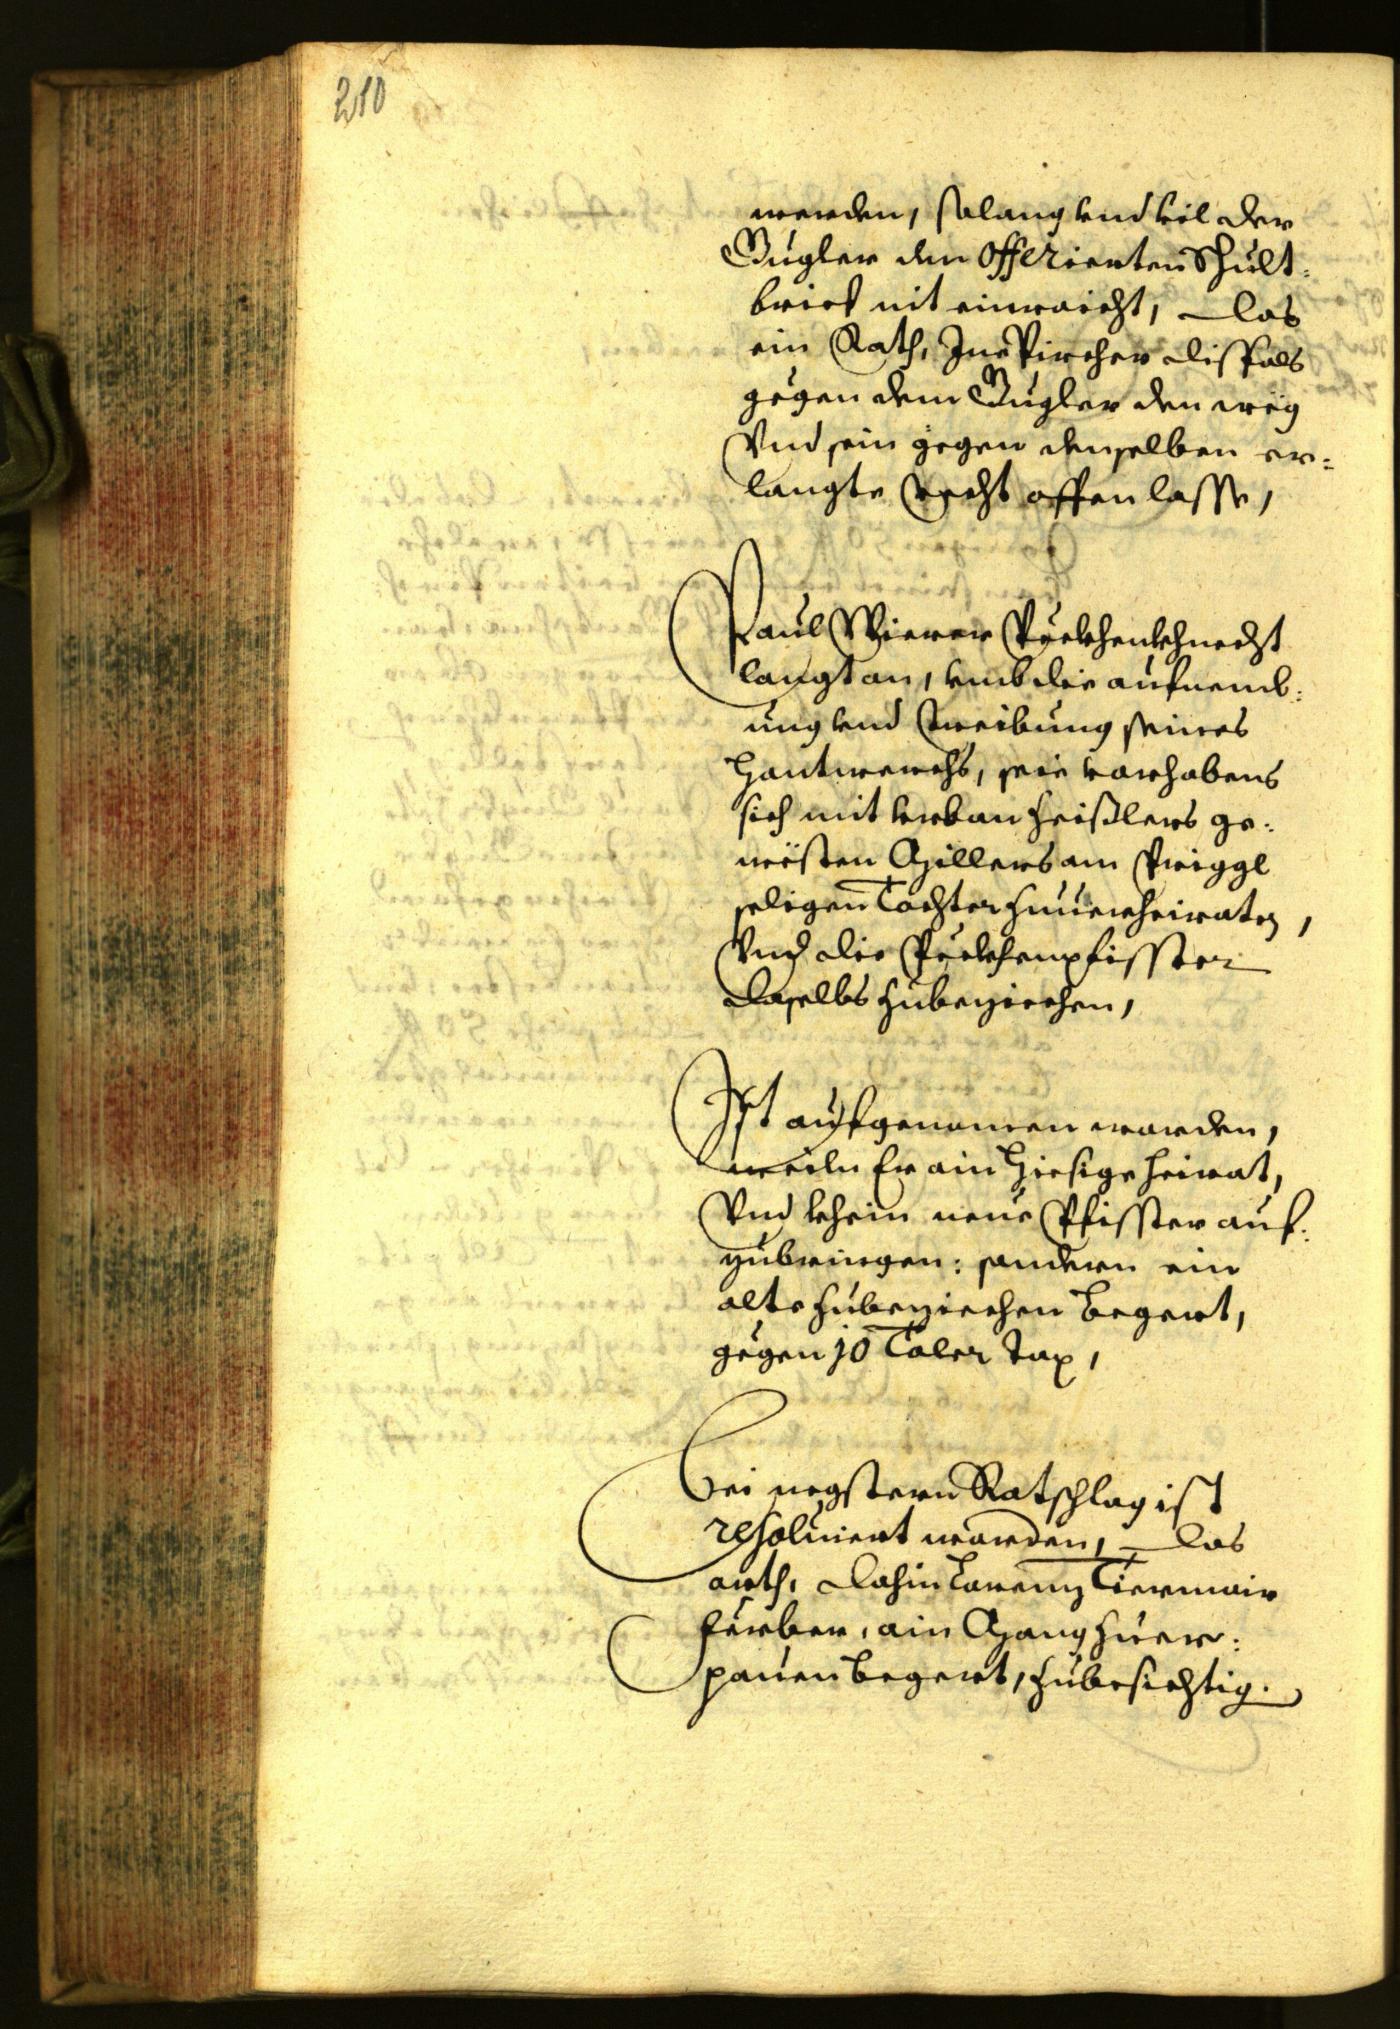 210
werden, solang vnd vil der
Gugler den Offerierten Schult-
brief nit einraicht, das
ein Rath, Ine Pircher disfals
gegen dem Gugler den weg
Vnd sein gegen denselben er-
langte recht offen lasse,
Paul Wierer Peckhenkhnecht
langt an, vmb die aufnemb-
ung vnd treibung seines
Hantwerchs, seie vorhabens
sich mit Vrban Heißlers ge-
wësten Millers am Priggl
seligen Tochter zuuerheiraten,
Vnd die Peckhenpfisster
daselbs zubeziechen,
Ist aufgenomen worden,
weiln Er ain hiesige heirat,
Vnd khein neue Pfisster auf-
zubringen: sondern ein
alte zubeziechen begert,
gegen 10 Taler Tax,
Bei negstern Ratschlag ist
resoluiert worden, das
orth, dahin Lorenz Tiermair
Färber, ain Gang zuer-
pauen begert, zubesichtig.